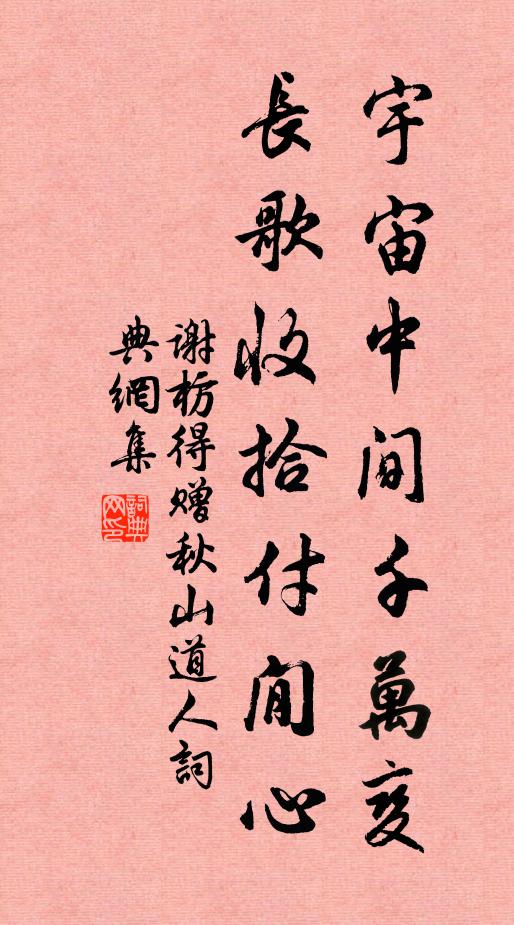 宇宙中間千萬変
長歌收拾付閒心
謝枋得贈秋山道人詞
典網集
詞典網印